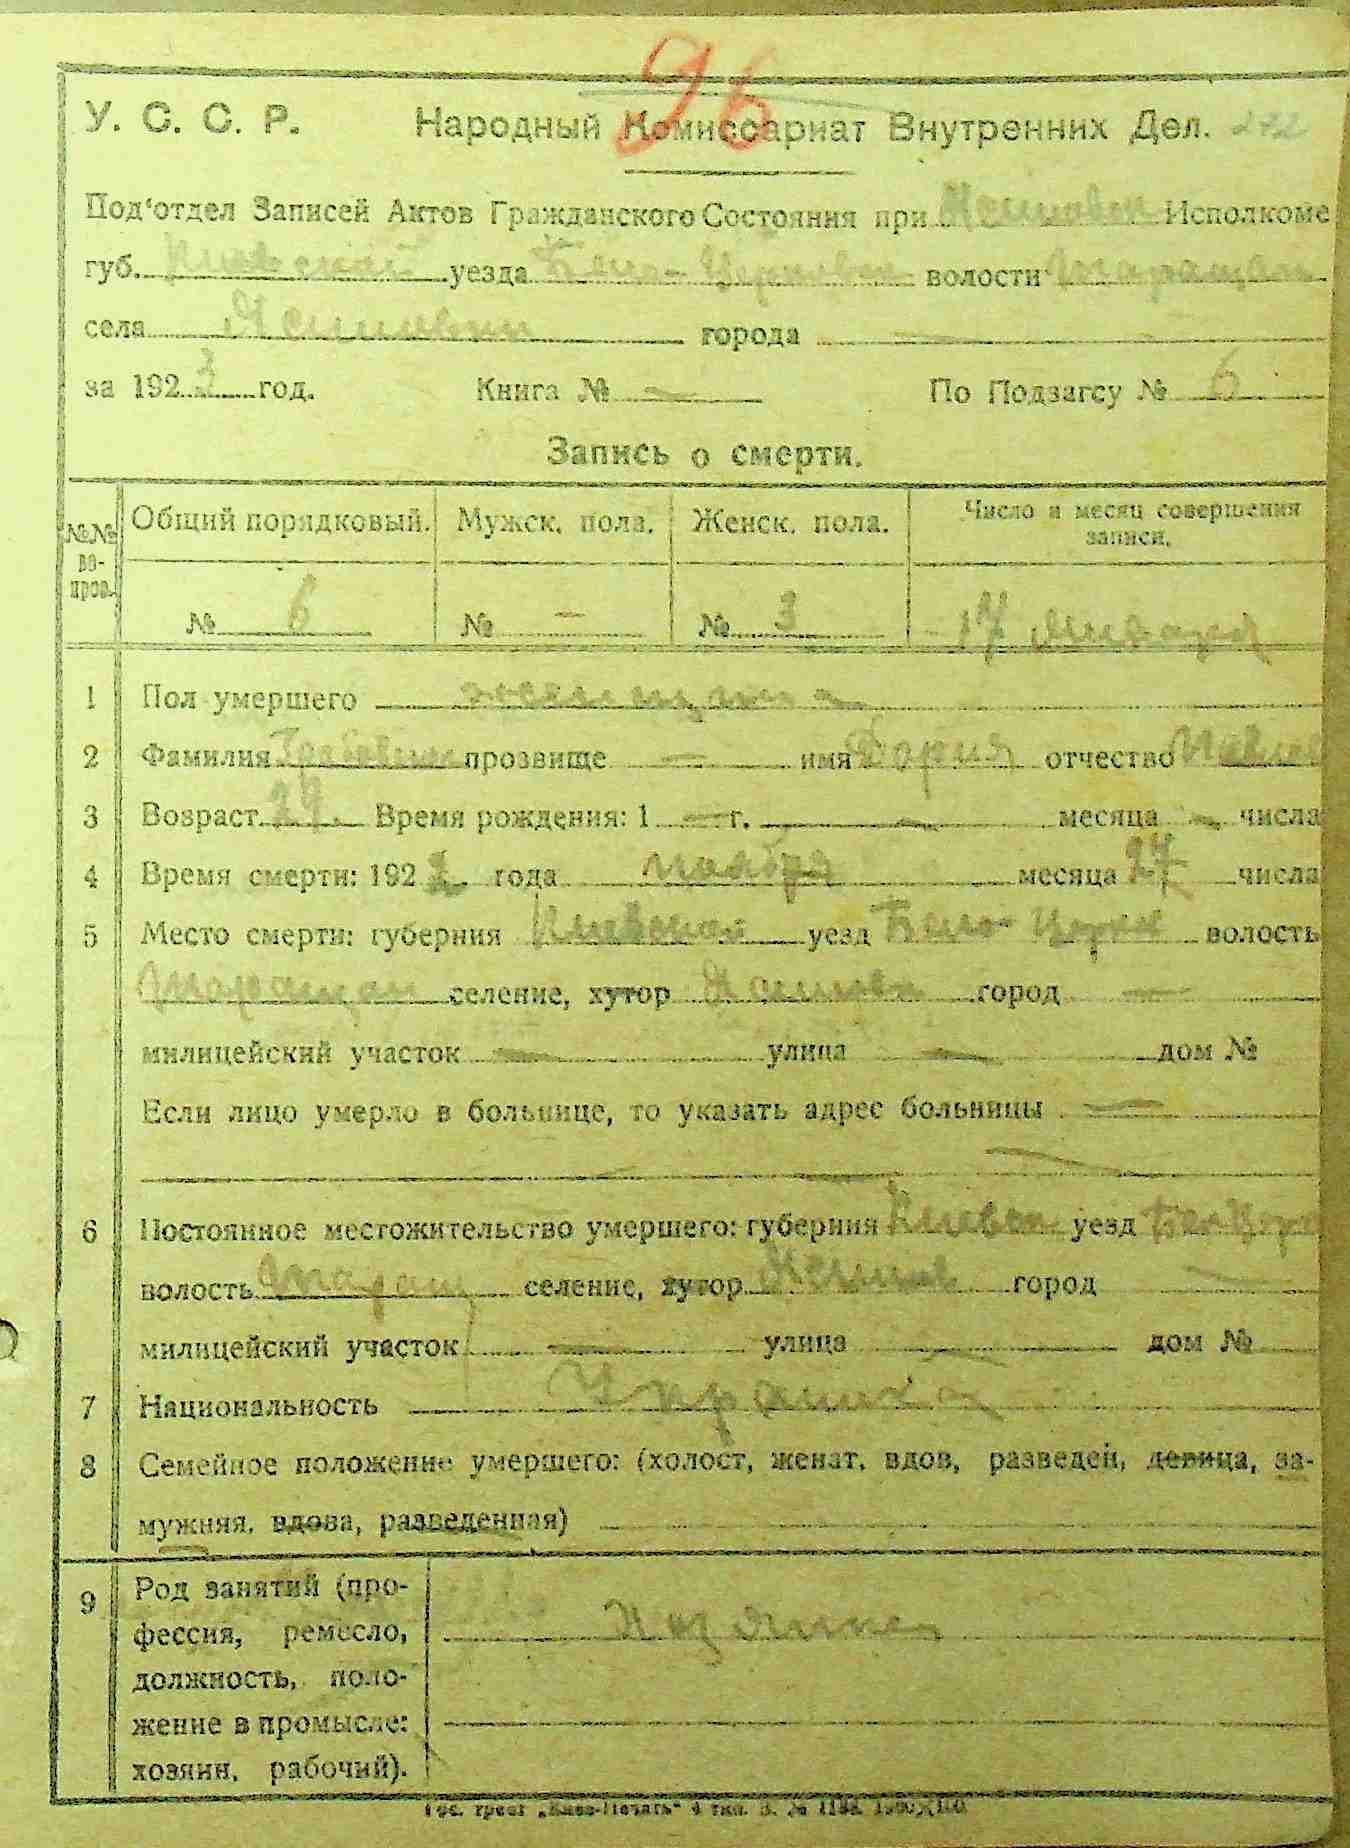 96
У. С. С. Р. Народный Комиссариат Внутренних Дел. 272
Под‘отдел Записей Актов Гражданского Состояния при Исполкоме
губ. Киевской уезда Бело-Церковск волости Таращан
села города —
за 1923 год. Книга № — По Подзагсу № 6
Запись о смерти.
№№ во-прос. Общий порядковый. Мужск. пола. Женск. пола. Число и месяц совершения записи.
№ 6 № — № 3 17 января
1 Пол умершего женщина
2 Фамилия прозвище — имя Дария отчество Павлов
3 Возраст 29. Время рождения: 1 — г. — месяца — числа
4 Время смерти: 1922 года ноября месяца 27 числа
5 Место смерти: губерния Киевской уезд Бело-Церк волость
Таращан селение, хутор город —
милицейский участок — улица — дом №
Если лицо умерло в больнице, то указать адрес больницы —
6 Постоянное местожительство умершего: губерния Киевск уезд БелЦерк
волость Таращ селение, хутор город —
милицейский участок — улица — дом №
7 Национальность Украинка
8 Семейное положение умершего: (холост, женат, вдов, разведен, девица, за-
мужняя, вдова, разведенная)
9 Род занятий (про-
фессия, ремесло,
должность, поло-
жение в промысле:
хозяин, рабочий).